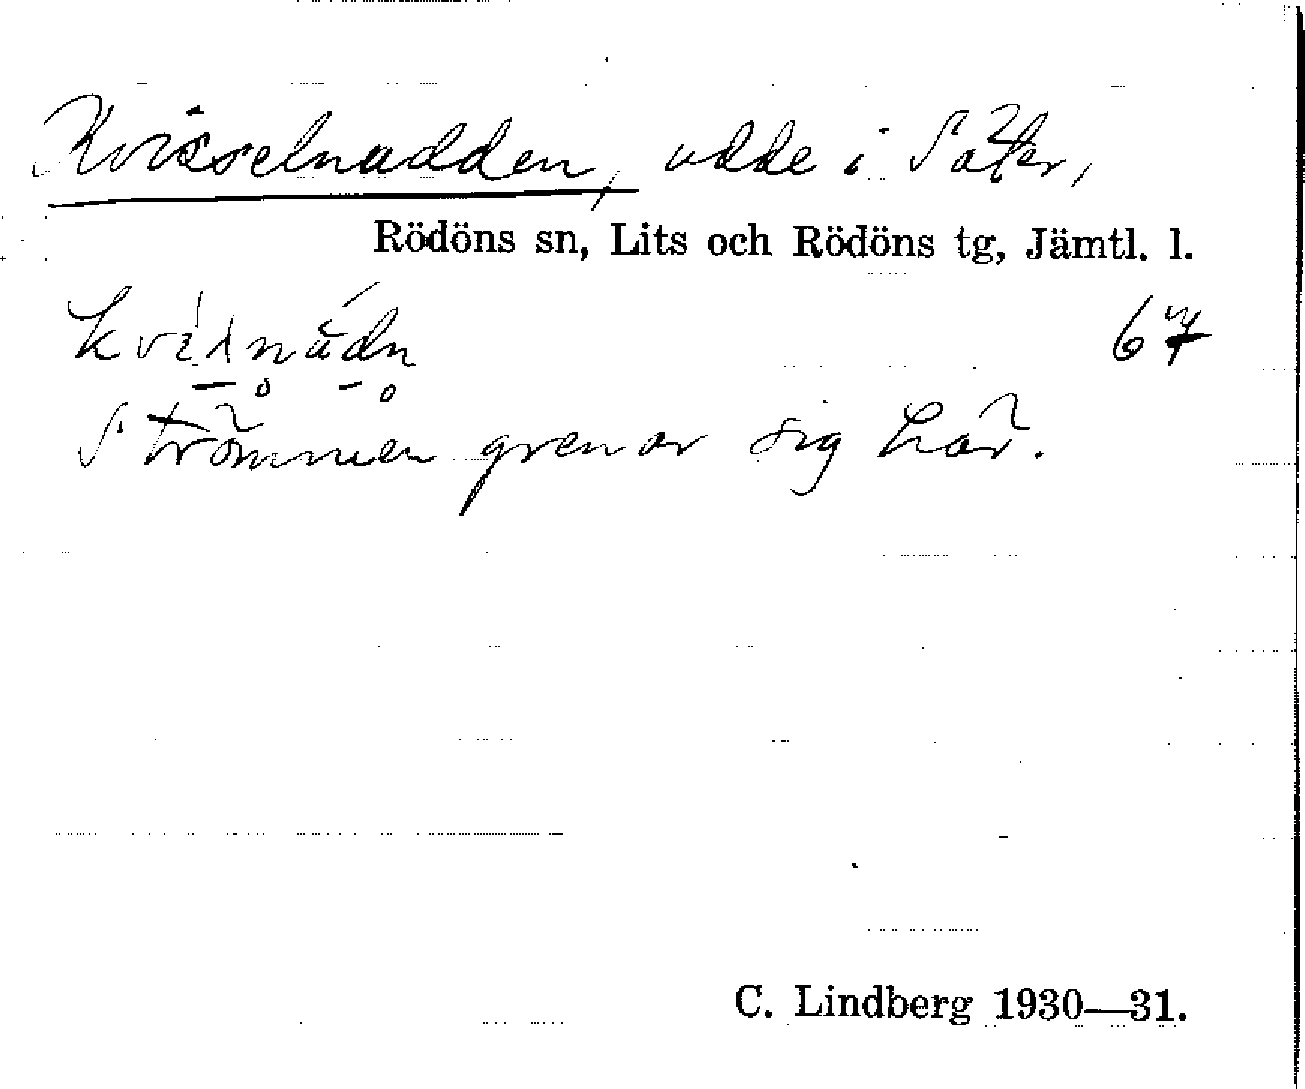 Kvisselnadden, udde i Säter,
Rödöns sn, Lits och Rödöns tg, Jämtl. l.
Strömmen grenar sig här.
C. Lindberg 1930—31.